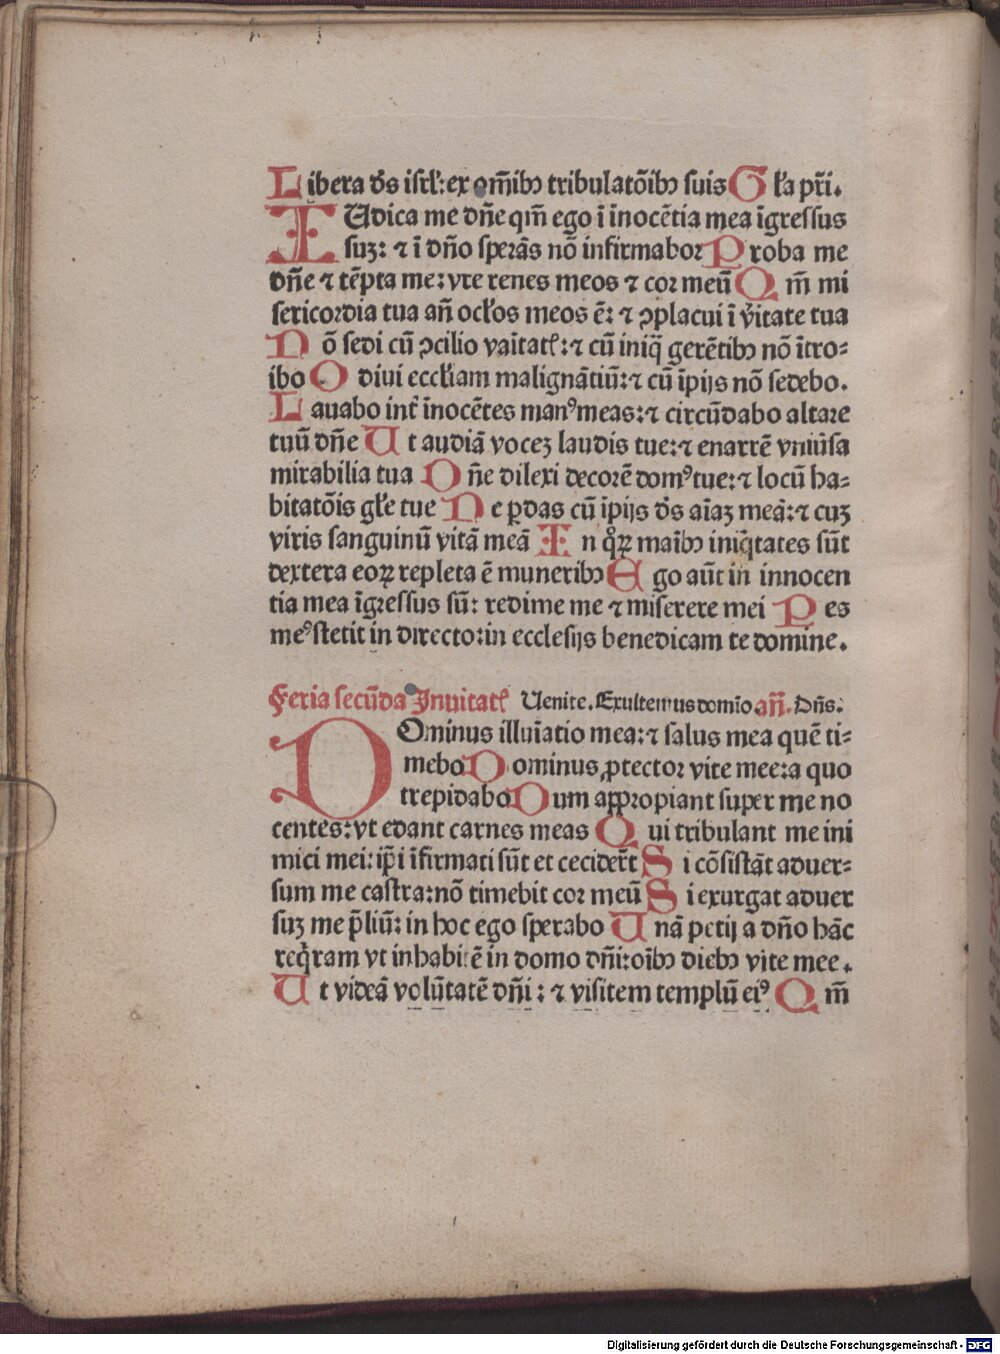 Libera ds̄ isrl̄: ex om̄ibꝰ tribulatōibꝰ suis Gl̄a pr̄i.
IUdica me dn̄e qm̄ ego ī inocētia mea īgressus
suꝫ: ⁊ ī dn̄o sperās nō infirmabor Proba me
dn̄e ⁊ tēpta me: vre renes meos ⁊ cor meū Qm̄ mi
sericordia tua an̄ ocl̄os meos ē: ⁊ ꝯplacui ī v̄itate tua
Nō sedi cū ꝯcilio vaītatꝭ: ⁊ cū iniq̄ gerētibꝰ nō ītro-
ibo Odivi eccl̄iam malignātiū: ⁊ cū īpijs nō sedebo.
Lavabo int̄ īnocētes manꝰ meas: ⁊ circūdabo altare
tuū dn̄e Ut audiā voceꝫ laudis tue: ⁊ enarrē vniūsa
mirabilia tua Dn̄e dilexi decorē domꝰ tue: ⁊ locū ha-
bitatōis gl̄e tue Ne ꝑdas cū īpijs ds̄ aīaꝫ meā: ⁊ cuꝫ
viris sanguinū vitā meā In qͦꝝ maībꝰ iniq̄tates sūt
dextera eoꝝ repleta ē muneribꝰ Ego aūt in innocen
tia mea īgressus sū: redime me ⁊ miserere mei Pes
meꝰ stetit in directo: in ecclesijs benedicam te domine.
Feria secūda Inuitatꝭ Uenite. Exultemus domīo an̄. Dn̄s.
DOminus illuīatio mea: ⁊ salus mea quē ti-
mebo Dominus ꝓtector vite mee: a quo
trepidabo Dum appropiant super me no
centes: vt edant carnes meas Qui tribulant me ini
mici mei: ip̄i īfirmati sūt et cecider̄t Si cōsistāt aduer-
sum me castra: nō timebit cor meū Si exurgat aduer
suꝫ me p̄liū: in hoc ego sperabo Unā petij a dn̄o hāc
req̄ram vt inhabitē in domo dn̄i: oībꝰ diebꝰ vite mee.
Ut videā volūtatē dn̄i: ⁊ visitem templū eiꝰ Qm̄
Digitalisierung gefördert durch die Deutsche Forschungsgemeinschaft - DFG